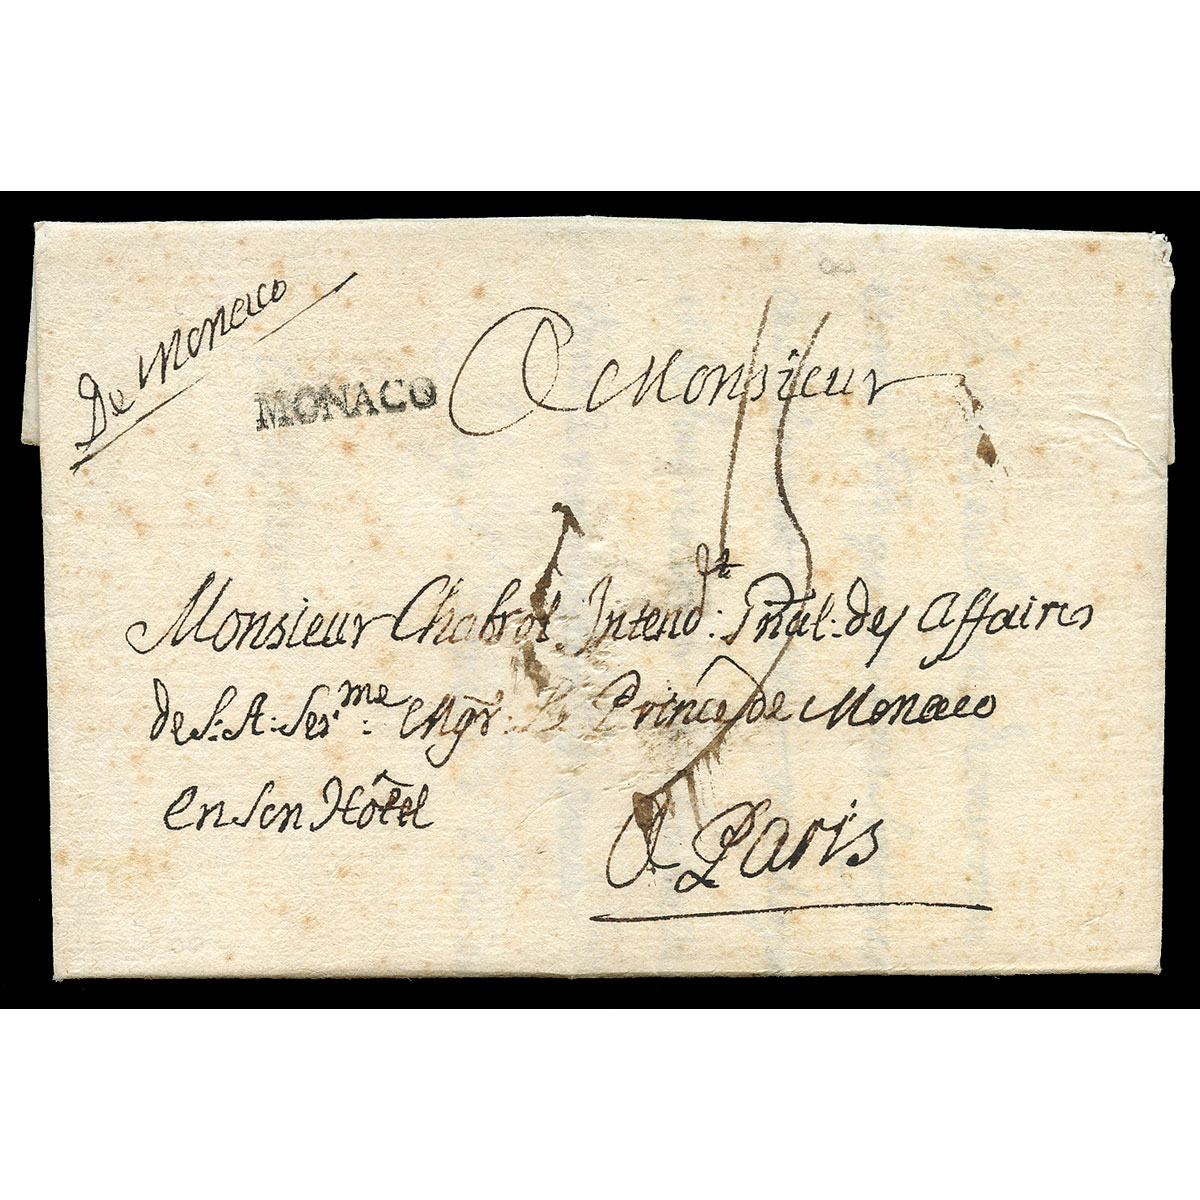 De Monaco
MONACO
A Monsieur
15
Monsieur Chabrol Intend.dt Gnal. des affaires
de S. A. Ser.me Mgr. Le Prince de Monaco
en son Hôtel
A Paris